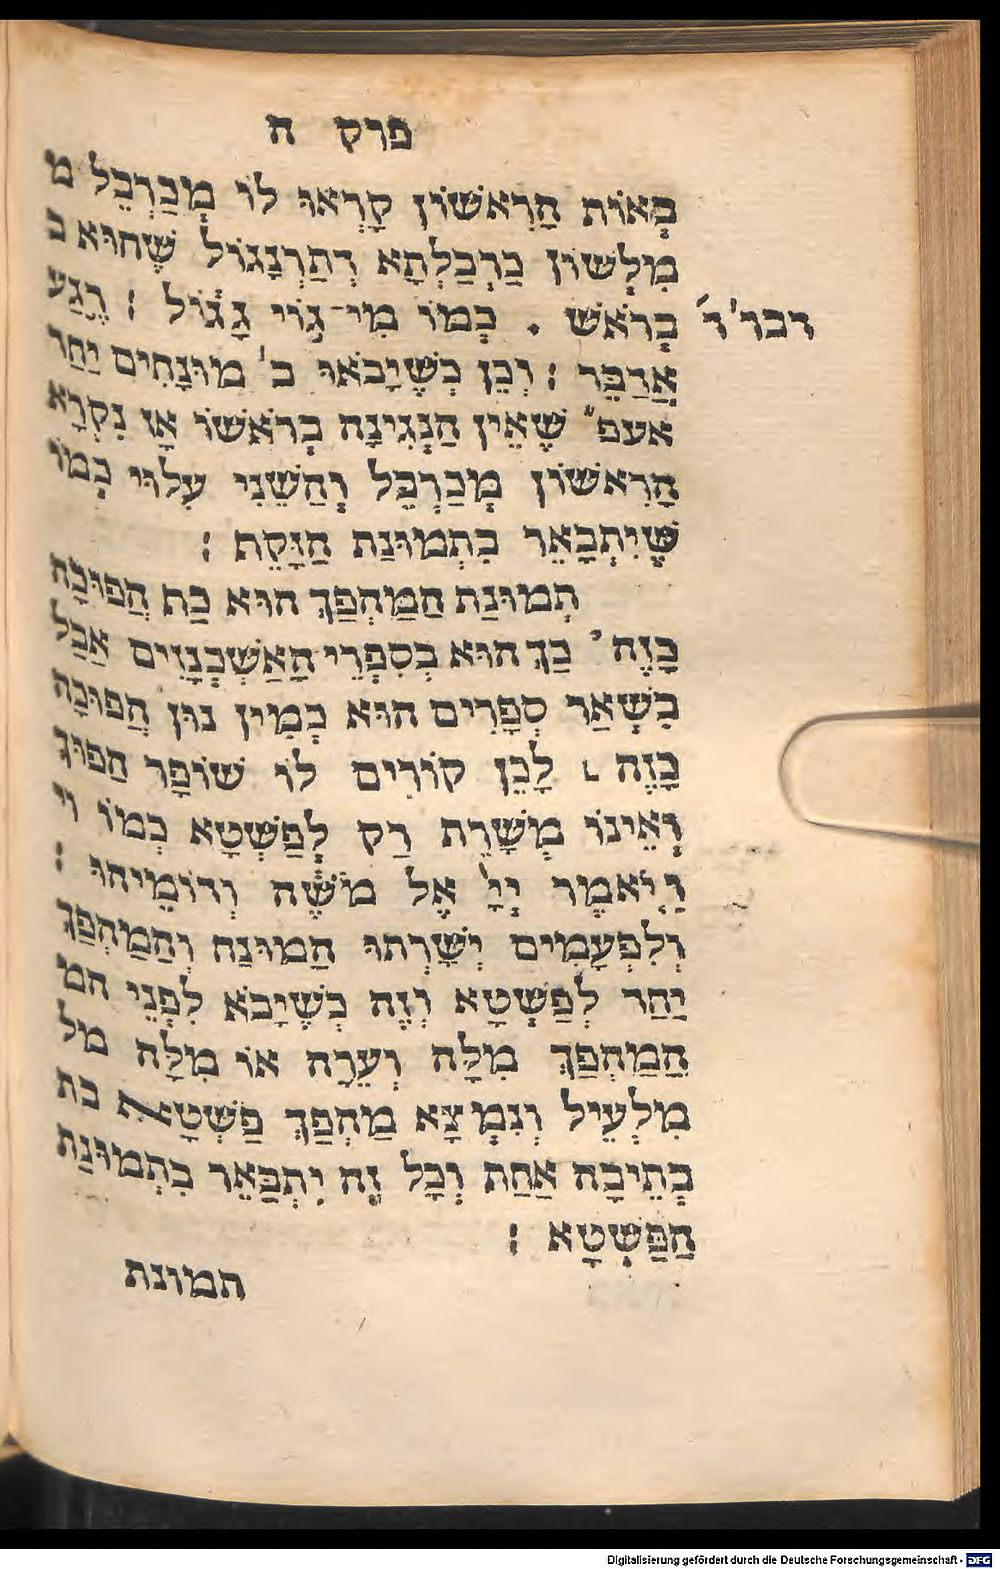 פרק ח
בָּאוֹת הָרִאשׁוֹן קָרְאוּ לוֹ מְכַרְבֵּל מ
מִלְשׁוֹן כַּרְבַּלְתָּא דְתַרְנָגוֹל שֶׁהוּא כ
בָּרֹאשׁ . כְּמוֹ מִי־גוֹי גָּדוֹל : רֶגַע
דבר׳ ד׳
אֲדַבֵּר : וְכֵן כְּשֶׁיָבֹאוּ ב׳ מוּנָחִים יַחַד
אעפ״ שֶׁאֵין הַנְגִינָה בְּרֹאשׁוֹ אָז נִקְרָא
הָרִאשׁוֹן מְכַרְבֵּל וְהַשֵּׁנִי עִלּוּי כְּמוֹ
שֶׁיִתְבָּאֵר בִּתְמוּנַת הַזָּקֵף :
תְּמוּנַת הַמַּהְפַּךְ הוּא כַּת הֲפוּכָה
כָּזֶה כַּךְ הוּא בְסִפְרֵי הָאַשְׁכְּנָזִים אֲבָל
בִּשְׁאַר סְפָרִים הוּא כְּמִין נוּן הֲפוּכָה
כָּזֶה לָכֵן קוֹרִים לוֹ שׁוֹפָר הָפוּךְ
וְאֵינוֹ מְשָׁרֵת רַק לְפַשְׁטָא כְּמוֹ וי
וַיֹּאמֶר יְיָ אֶל מֹשֶׁה וְדוֹמֵיהוּ :
וְלִפְעָמִים יְשָׁרְתוּ הַמּוּנַח וְהַמַּהְפַּךְ
יַחַד לְפַשְׁטָא וְזֶה כְּשֶׁיָבֹא לִפְנֵי המ
הַמַּהְפַּךְ מִלָּה זְעֵרָה אוֹ מִלָּה מל
מִלְּעֵיל וְנִמְצָא מַהְפַּךְ פַּשְׁטָא בת
בְּתֵיבָה אַחַת וְכָל זֶה יִתְבָּאֵר בִּתְמוּנַת
הַפַּשְׁטָא :
תמונת
Digitalisierung gefördert durch die Deutsche Forschungsgemeinschaft - DFG